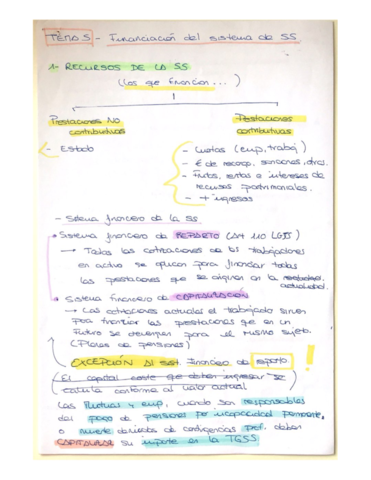 TEMA 5 - Financiación del sistema de SS
1- RECURSOS DE LA SS
(los que financian...)
Prestaciones No contributivas
- Estado
Prestaciones contributivas
- Cuotas (emp, trabaj)
- € de recargo, sanciones, otras.
- Frutos, rentas o intereses de
recursos patrimoniales.
- + ingresos
- Sistema financiero de la SS.
• Sistema financiero de REPARTO (Art 110 LGSS)
→ Todas las cotizaciones de los trabajadores
en activo se aplican para financiar todas
las prestaciones que se exigen en la
actualidad.
• Sistema financiero de CAPITALIZACIÓN
→ Las cotizaciones actuales el trabajado sirven
para financiar las prestaciones que en un
futuro se devenguen para el mismo sujeto.
(Planes de pensiones)
EXCEPCIÓN Al sist. financiero de reparto. !
(El capital coste que deben ingresar se
calcula conforme al valor actual
Las Mutuas y emp, cuando son responsables
del pago de pensiones por incapacidad permanente,
o muerte derivadas de contingencias prof. deben
CAPITALIZAR su importe en la TGSS